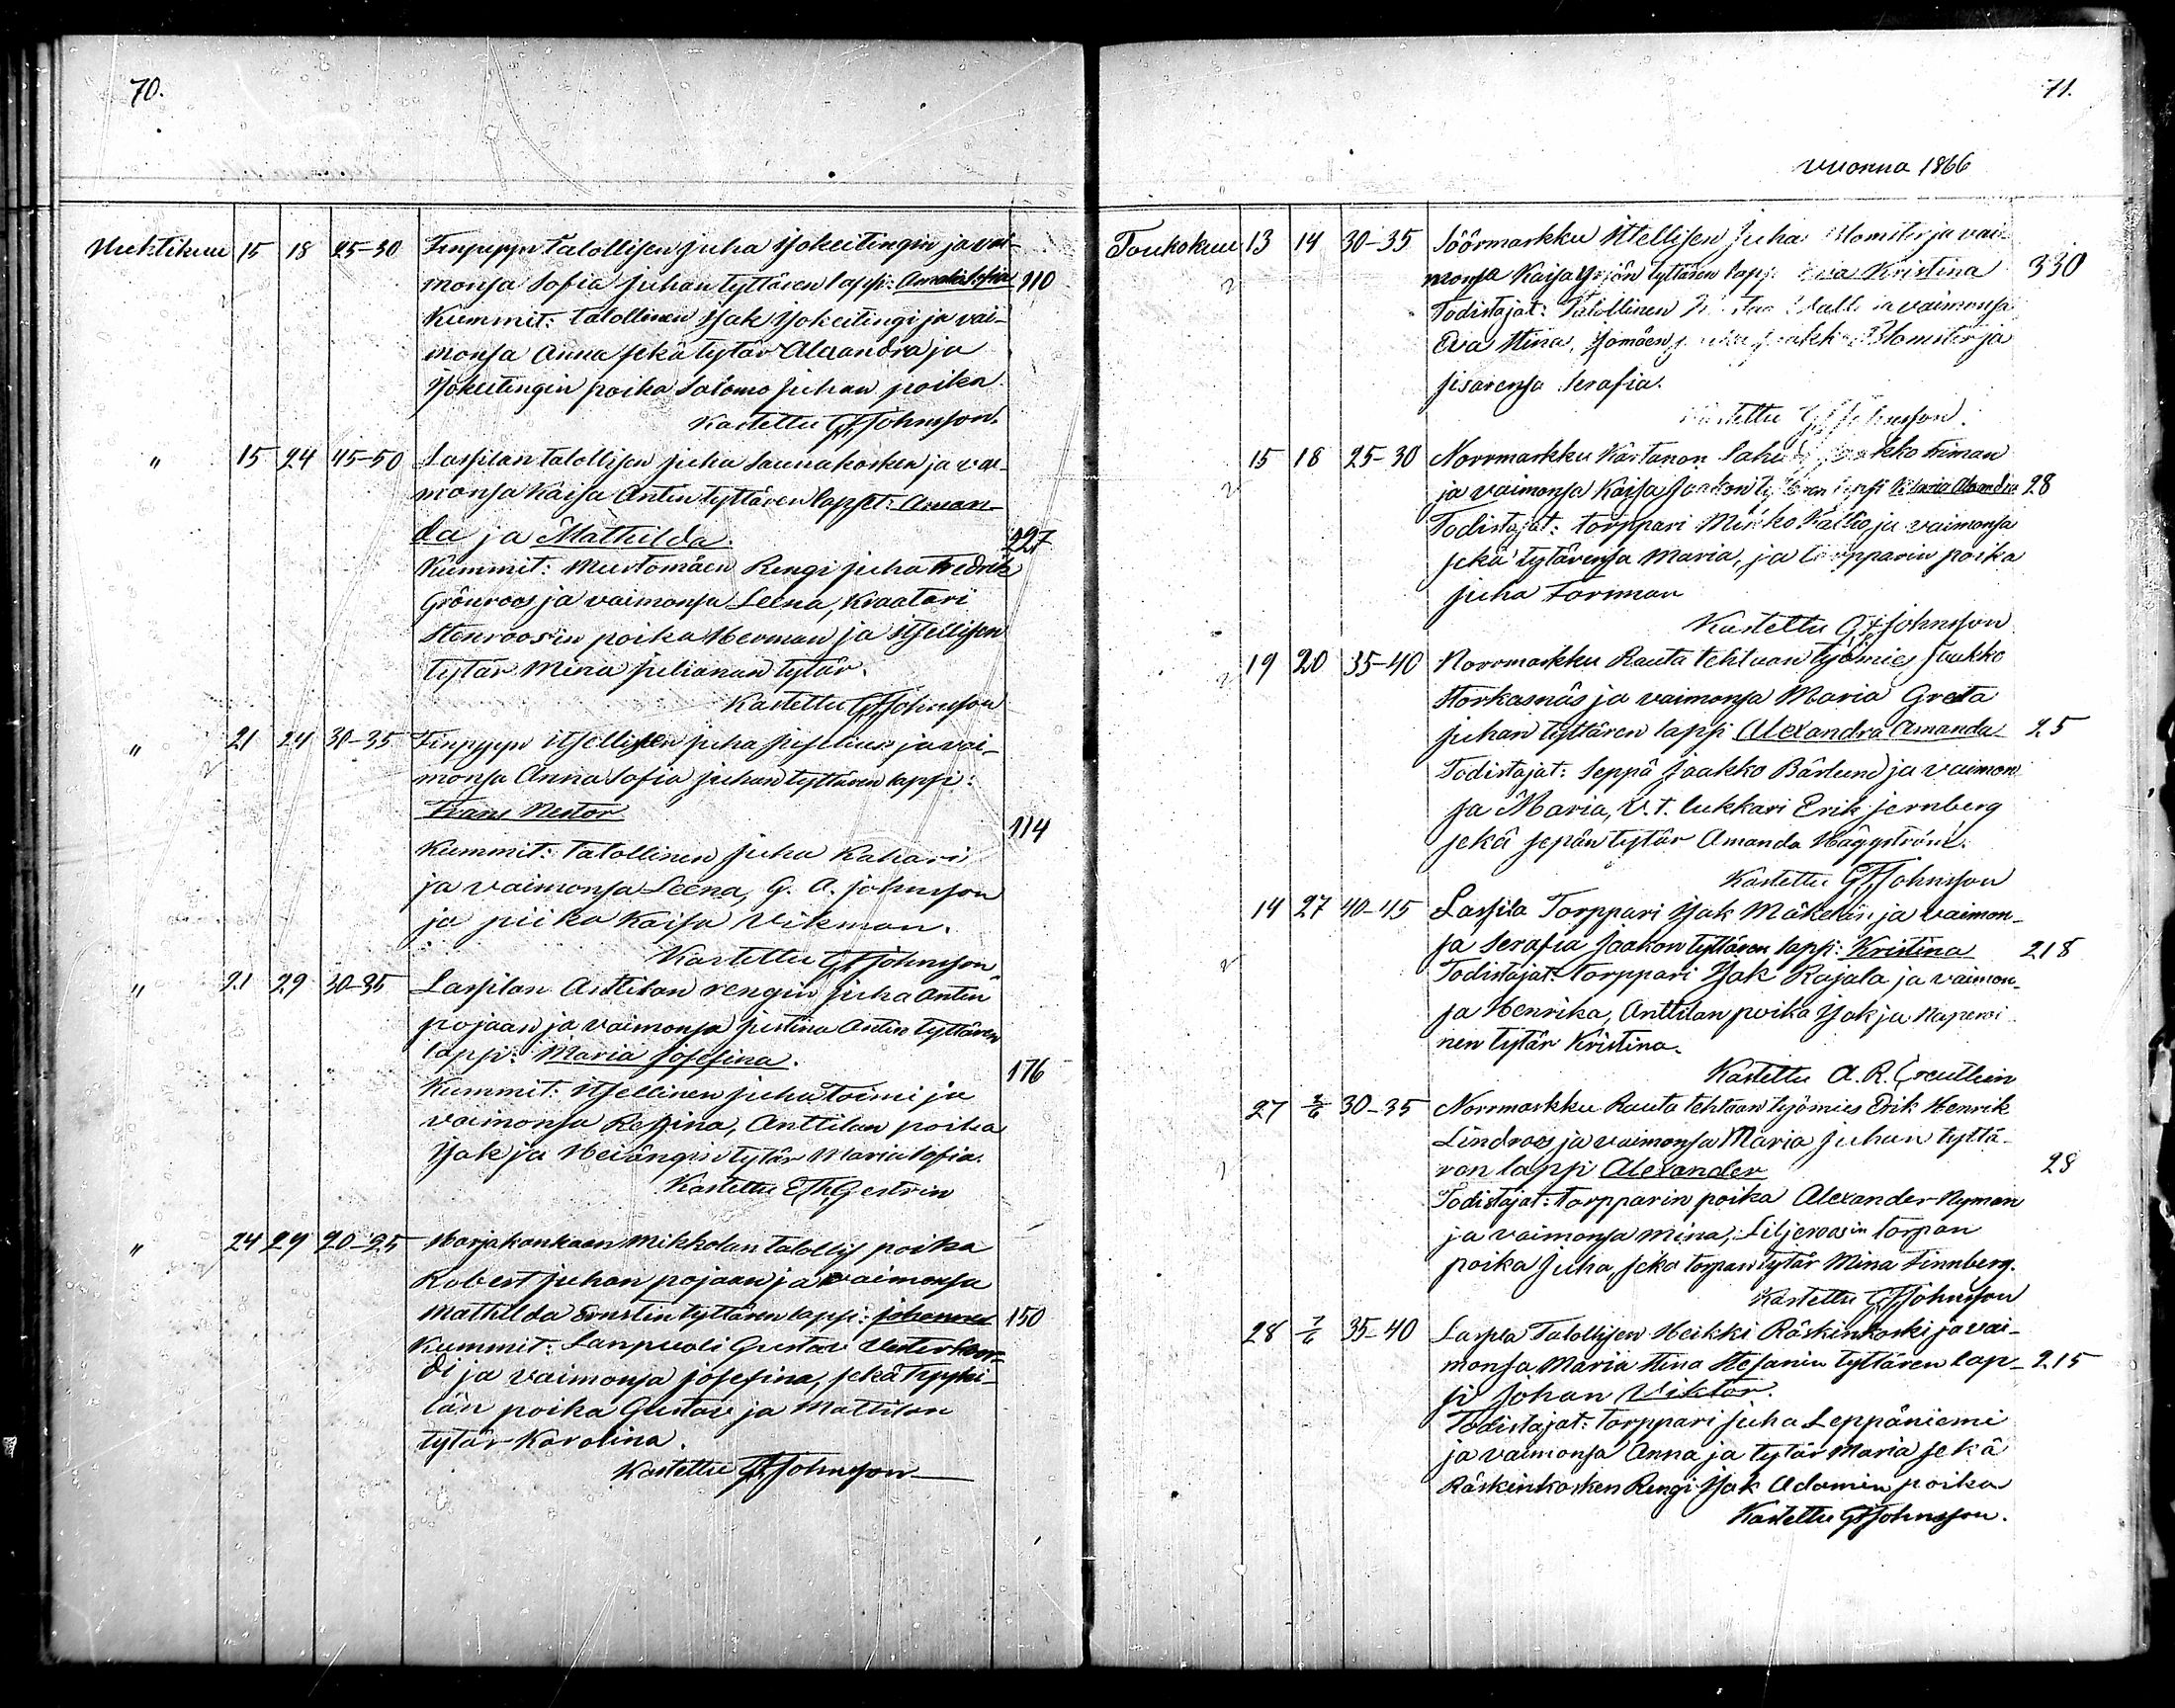 70.
Huhtikuu 15 18 25-30 Finpyyn Talollisen Juha Isokeitingin ja vai-
monsa Sofia Juhan tyttären lapsi: Amalia Sofia 110
Kummit: talollinen Isak Isokeitingi ja vai-
monsa Anna sekä tytär Alexandra ja
Isokeitingin poika Salomo Juhan poika
Kastettu G. F. Johnsson.
" 15 24 45-50 Lassilan talollisen Juha Saunakosken ja vai-
monsa Kaisa Antin tyttären lapset: Aman-
da ja Mathilda. 227
Kummit: Mustomäen Rengi Juha Fredrik
Grönroos ja vaimonsa Leena, Kraatari
Stenroosin poika Herman ja Itsellisen
tytär Mina Julianan tytär.
Kastettu G. F. Johnsson
" 21 24 30-35 Finpyyn itsellisen Juha ja vai-
monsa Anna Sofia Juhan tyttären lapsi:
Frans Nestor 114
Kummit: talollinen Juha Kahari
ja vaimonsa Leena, G. A. Johnsson
ja piika Kaisa Vikman.
Kastettu G. F. Johnsson
" 21 29 30-35 Lassilan Anttilan rengin Juha Antin
pojaan ja vaimonsa Justina Antin tyttären
lapsi: Maria Josefina. 176
Kummit: itsellinen Juha Toimi ja
vaimonsa Regina, Anttilan poika
Isak ja tytär Maria Sofia.
Kastettu E. Th. Gestrin
" 24 29 20-25 Harjakankaan Mikkolan talollis poika
Robert Juhan pojaan ja vaimonsa
Mathilda Ernstin tyttären lapsi: Johannes 150
Kummit: Lanpuoli Gustav
di ja vaimonsa Josefina, sekä Typpi-
län poika Gustav ja Mattilan
tytär Karolina.
Kastettu G. F. Johnsson
71.
vuonna 1866
Toukokuu 13 14 30-35 Söörmarkku Ittellisen Juha Blomster ja vai-
monsa Kaisa Yrjön tyttären lapsi Eva Kristina 330
Todistajat: Talollinen ja vaimonsa
Eva Stina, Isomäen Jaakko Blomster ja
sisarensa Serafia.
Kastettu G. F. Johnsson.
15 18 25-30 Norrmarkku Kartanon Jaakko Friman
ja vaimonsa Kaisa Jaakon tyttären lapsi Maria Alexandra 28
Todistajat: torppari Mikko Kallio ja vaimonsa
sekä tytärensa Maria, ja torpparin poika
Juha Forsman
Kastettu G. F. Johnsson
19 20 35-40 Norrmarkku Rauta tehtaan työmies Jaakko
Storkasnäs ja vaimonsa Maria Greta
Juhan tyttären lapsi Alexandra Amanda 25
Todistajat: Seppä Jaakko Bärlund ja vaimon
sa Maria, V. t. lukkari Erik Jernberg
sekä sepän tytär Amanda Häggström.
Kastettu G. F. Johnsson
14 27 40-45 Lassila Torppari Isak Mäkelin ja vaimon-
sa Serafia Jaakon tyttären lapsi: Kristina 218
Todistajat: torppari Isak Rajala ja vaimon-
sa Henrika, Anttilan poika Isak ja
nen tytär Kristina.
Kastettu A. R. Creutlein
27 2/6 30-35 Norrmarkku Rauta tehtaan työmies Erik Henrik
Lindroos ja vaimonsa Maria Juhan tyttä-
ren lapsi Alexander 28
Todistajat: torpparin poika Alexander Nyman
ja vaimonsa Mina, Liljeroosin torpan
poika Juha, sekä torpan tytär Mina Finnberg.
Kastettu G. F. Johnsson
28 7/6 35-40 Lassila Talollisen Heikki Räskinkoski ja vai-
monsa Maria Stina Stefanin tyttären lap- 215
si Johan Viktor.
Todistajat: torppari Juha Leppäniemi
ja vaimonsa Anna ja tytär Maria sekä
Räskinkosken Rengi Isak Adamin poika
Kastettu G. F. Johnsson.